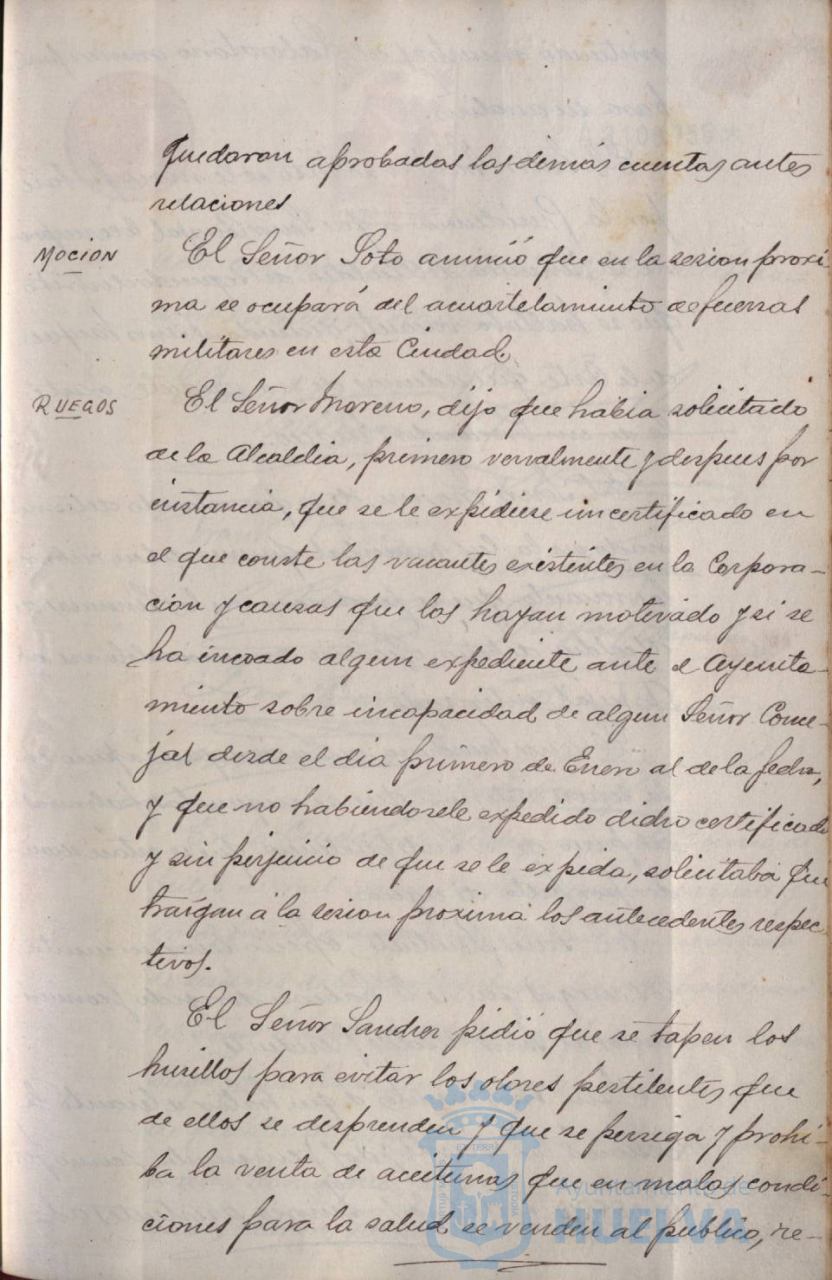 quedaron aprobadas las demás cuentas antes
relaciones
MOCION
El Señor Soto anunció que en la sesion proxi-
ma se ocupará del acuartelamiento de fuerzas
militares en esta Ciudad.
RUEGOS
El Señor Moreno, dijo que habia solicitado
de la Alcaldia, primero vervalmente y despues por
instancia, que se le expidiese un certificado en
el que conste las vacantes existentes en la Corpora-
cion y causas que los hayan motivado y si se
ha incoado algun expediente ante el Ayunta-
miento sobre incapacidad de algun Señor Conce-
jal desde el dia primero de Enero al de la fecha,
y que no habiendosele expedido dicho certificado
y sin perjuicio de que se le expida, solicitaba que
traigan á la sesion proxima los antecedentes respec-
tivos.
El Señor Sanchez pidió que se tapen los
husillos para evitar los olores pestilentes que
de ellos se desprenden y que se persiga y prohi-
ba la venta de aceitunas que en malas condi-
ciones para la salud se venden al publico, re-
Ayuntamiento de
HUELVA